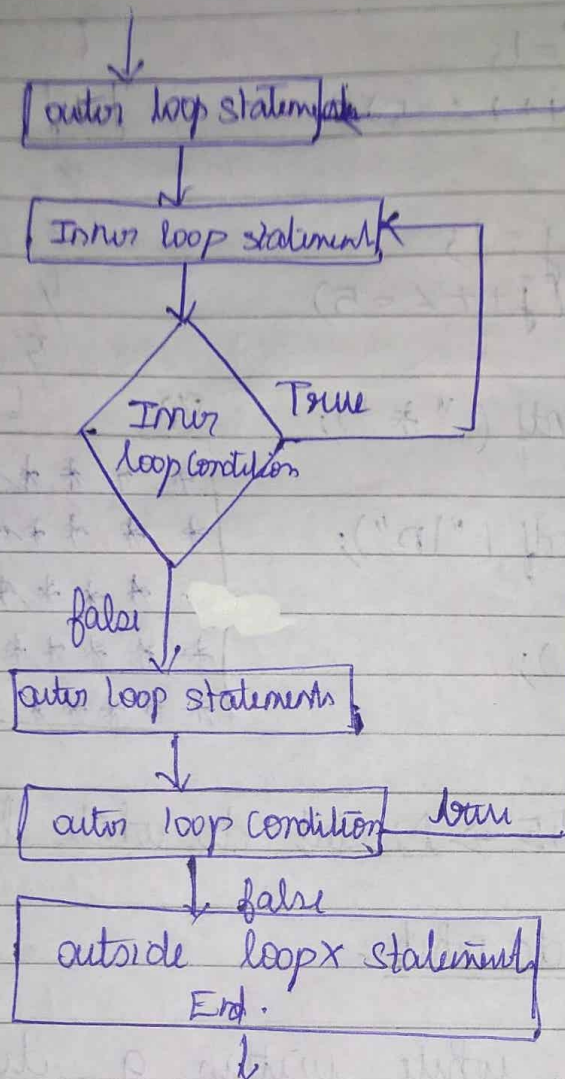 outer loop statements
Inner loop statement
True
Inner
loop condition
false
outer loop statements
outer loop condition
true
false
outside loopx statement
End.